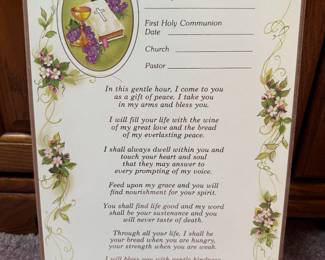 First Holy Communion
Date
Church
Pastor
In this gentle hour, I come to you
as a gift of peace. I take you
in my arms and bless you.
I will fill your life with the wine
of my great love and the bread
of my everlasting peace.
I shall always dwell within you and
touch your heart and soul
that they may answer to
every prompting of my voice.
Feed upon my grace and you will
find nourishment for your spirit.
You shall find life good and my word
shall be your sustenance and you
will never taste of death.
Through all your life, I shall be
your bread when you are hungry,
your strength when you are weak.
I will bless you with gentle kindness